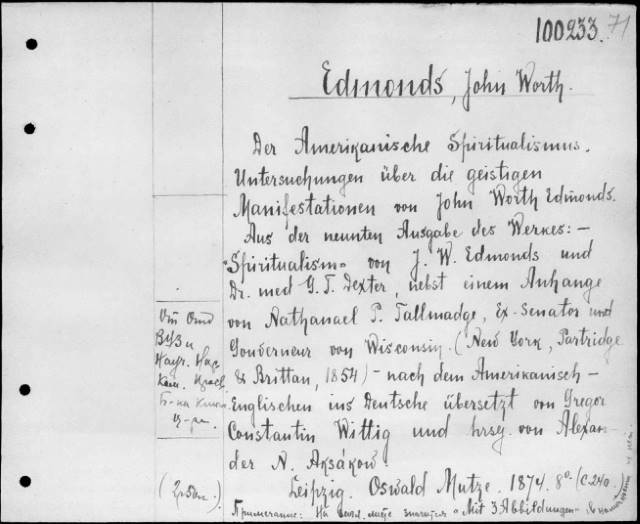 100233. 71
Edmonds, John Worth.
Der Amerikanische Spiritualismus.
Untersuchungen über die geistigen
Manifestationen von John Worth Edmonds.
Aus der neunten Ausgabe des Werkes: –
"Spiritualism" von J. W. Edmonds und
Dr. med G. T. Dexter, nebst einem Anhange
von Nathanael P. Tallmadge, Ex-Senator und
Gouverneur von Wisconsin. (New York, Partridge
& Brittan, 1854) – nach dem Amerikanisch –
Englischen ins Deutsche übersetzt von Gregor
Constantin Wittig und hrsg. von Alexan-
der N. Aksákow.
Leipzig. Oswald Mutze. 1874. 8° (C.240.)
Примечание: На загл. листе значится "Mit 3 Abbildungen"